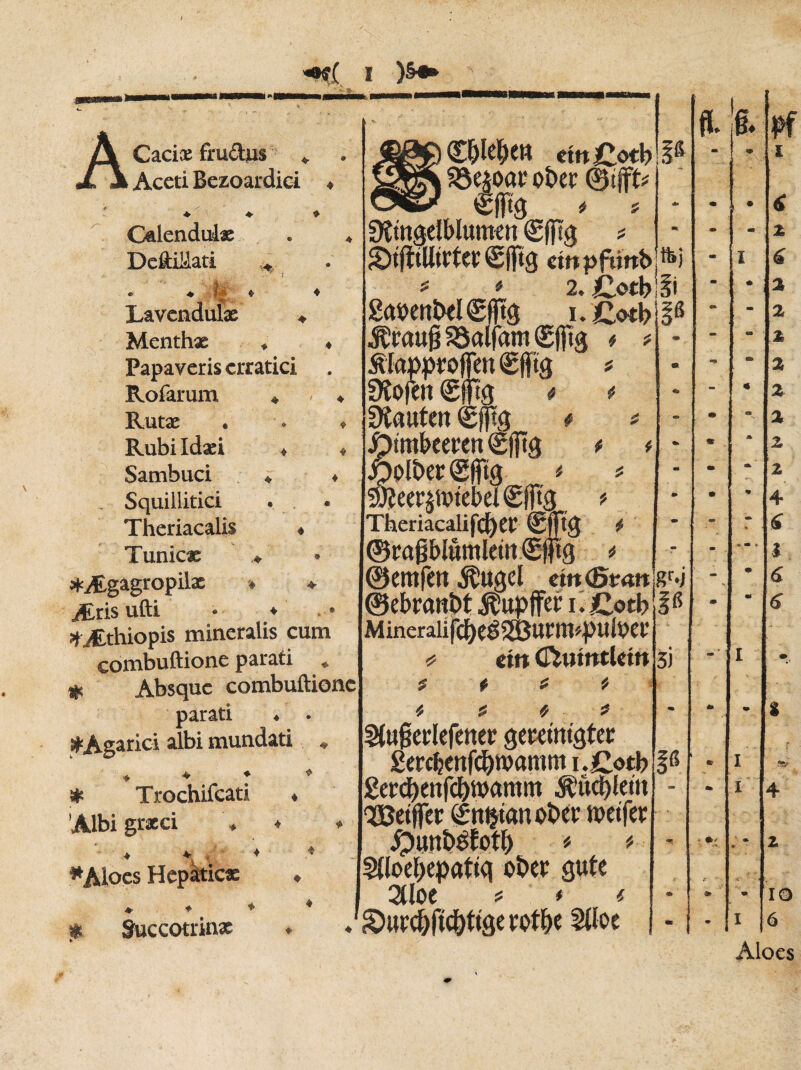 ( 1 )
fl. ß. pf
ACaciæ fructus . . Schlehen ein Loth ℥ß - - 1
Aceti Bezoardici . Bezoar oder Gifft⸗
. . . Essig ⸗ ⸗ - - - 6
Calendulæ . . Ringelblumen Essig ⸗ - - - 2
Destillati . . Distillirter Essig ein pfund ℔j - 1 6
. . . . ⸗ ⸗ 2. Loth ℥i - - 2
Lavendulæ . Lavendel Essig 1. Loth ℥ß - - 2
Menthæ . . Krauß Balsam Essig ⸗ ⸗ - - - 2
Papaveris erratici . Klapprossen Essig ⸗ - - - 2
Rosarum . . Rosen Essig ⸗ ⸗ - - - 2
Rutæ . . . Rauten Essig ⸗ ⸗ - - - 2
Rubi Idæi . . Himbeeren Essig ⸗ ⸗ - - - 2
Sambuci . . Holder Essig ⸗ ⸗ - - - 2
Squillitici . . Meerzwiebel Essig ⸗ - - - 4
Theriacalis . Theriacalischer Essig ⸗ - - - 6
Tunicæ . . Graßblümlein Essig ⸗ - - - 3
*Ægagropilæ . . Gemsen Kugel ein Gran gr.j - - 6
Æris usti . . . Gebrandt Kupffer 1. Loth ℥ß - - 6
*Æthiopis mineralis cum Mineralisches Wurm⸗pulver
combustione parati . ⸗ ein Quintlein ʒj - 1 -
* Absque combustione ⸗ ⸗ ⸗ ⸗
parati . . ⸗ ⸗ ⸗ ⸗ - - - 8
*Agarici albi mundati . Außerlesener gereinigter
. . . . Lerchenschwamm 1. Loth ℥ß - 1 -
* Trochiscati . Lerchenschwamm Küchlein - - 1 4
Albi græci . . . Weisser Entzian oder weiser
. . . . Hundskoth ⸗ ⸗ - - - 2
*Aloes Hepaticæ . Aloehepatiq oder gute
. . . . Aloe ⸗ ⸗ ⸗ - - - 10
* Succotrinæ . . Durchsichtige rothe Aloe - - 1 6
Aloes